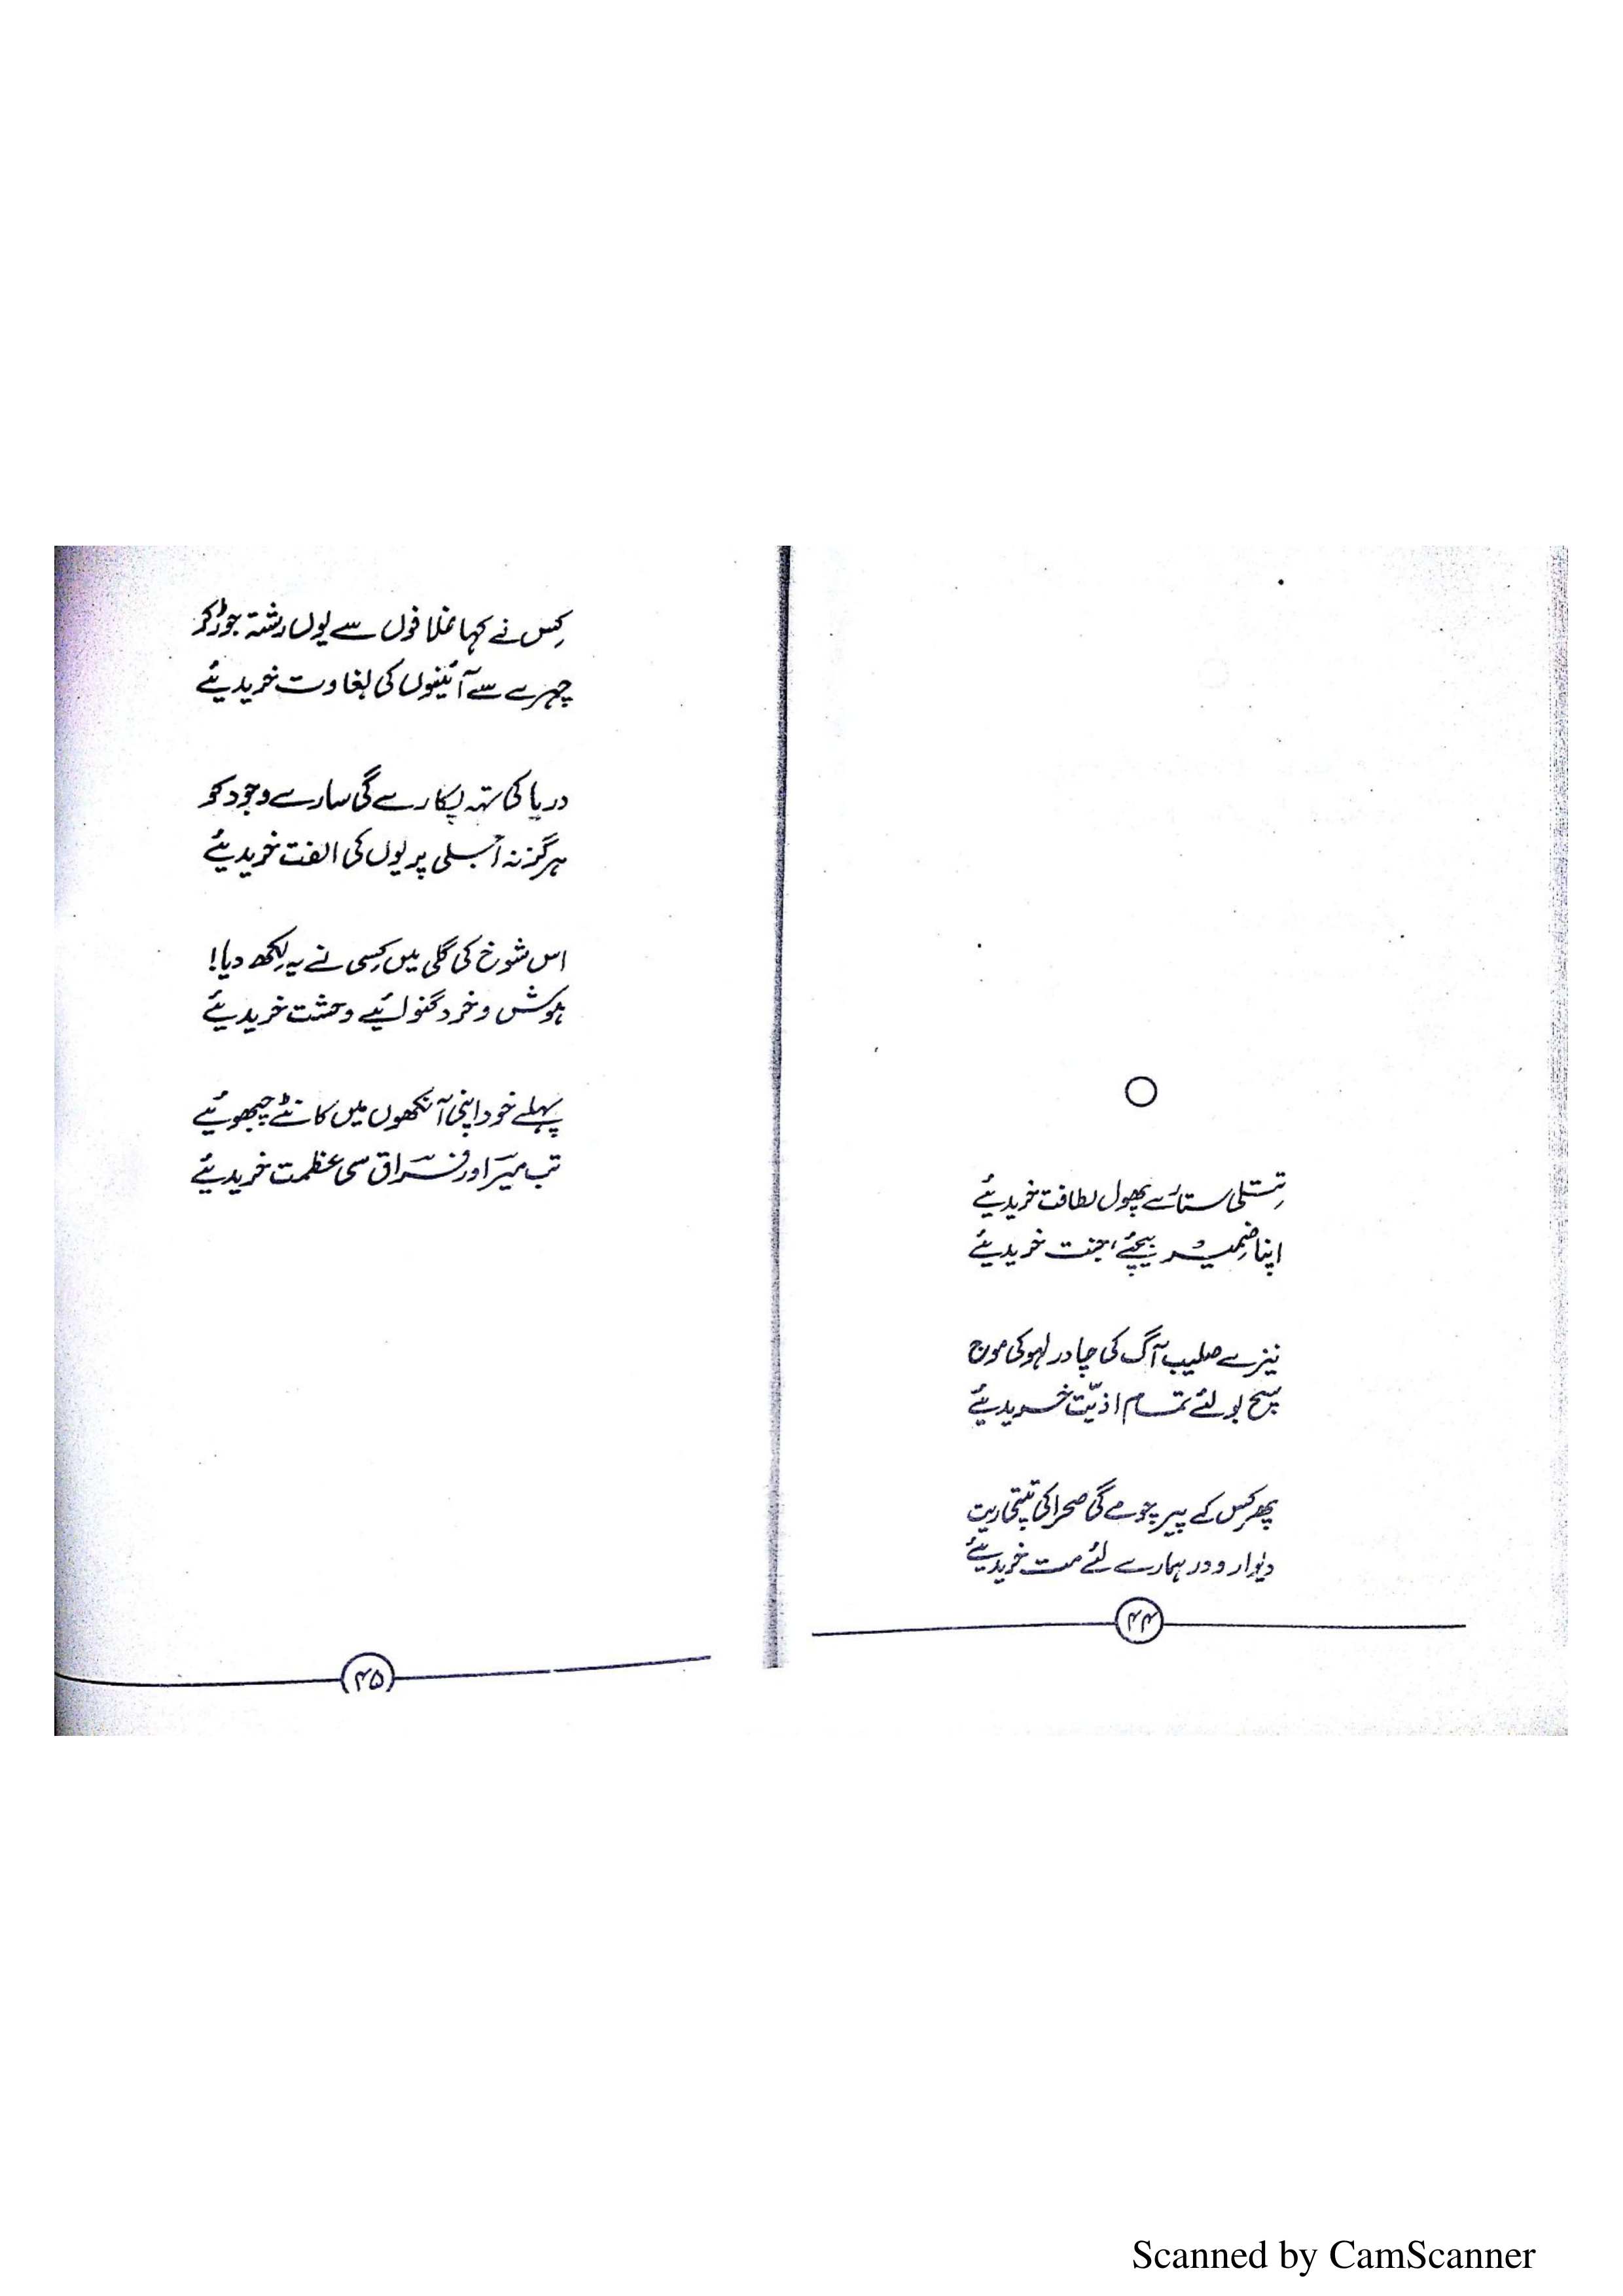 تتلی ستارے پھول لطافت خریدیئے
اپنا ضمیر بیچئے، جنت خریدیئے
نیزے صلیب آگ کی چادر لہو کی موج
سچ بولئے تمام اذیّت خریدیئے
پھر کس کے پیر چومے گی صحرا کی تپتی ریت
دیوار و در ہمارے لئے مت خریدیئے
۴۴
کِس نے کہا غلافوں سے یوں رشتہ جوڑ کر
چہرے سے آئینوں کی بغاوت خریدیئے
دریا کی تہہ پکارے گی سارے وجود کو
ہرگز نہ اُجلی پریوں کی الفت خریدیئے
اس شوخ کی گلی میں کِسی نے یہ لِکھ دیا!
ہوش و خرد گنوائیے وحشت خریدیئے
پہلے خود اپنی آنکھوں میں کانٹے چبھوئیے
تب میرؔ اور فراقؔ سی عظمت خریدیئے
۴۵
Scanned by CamScanner